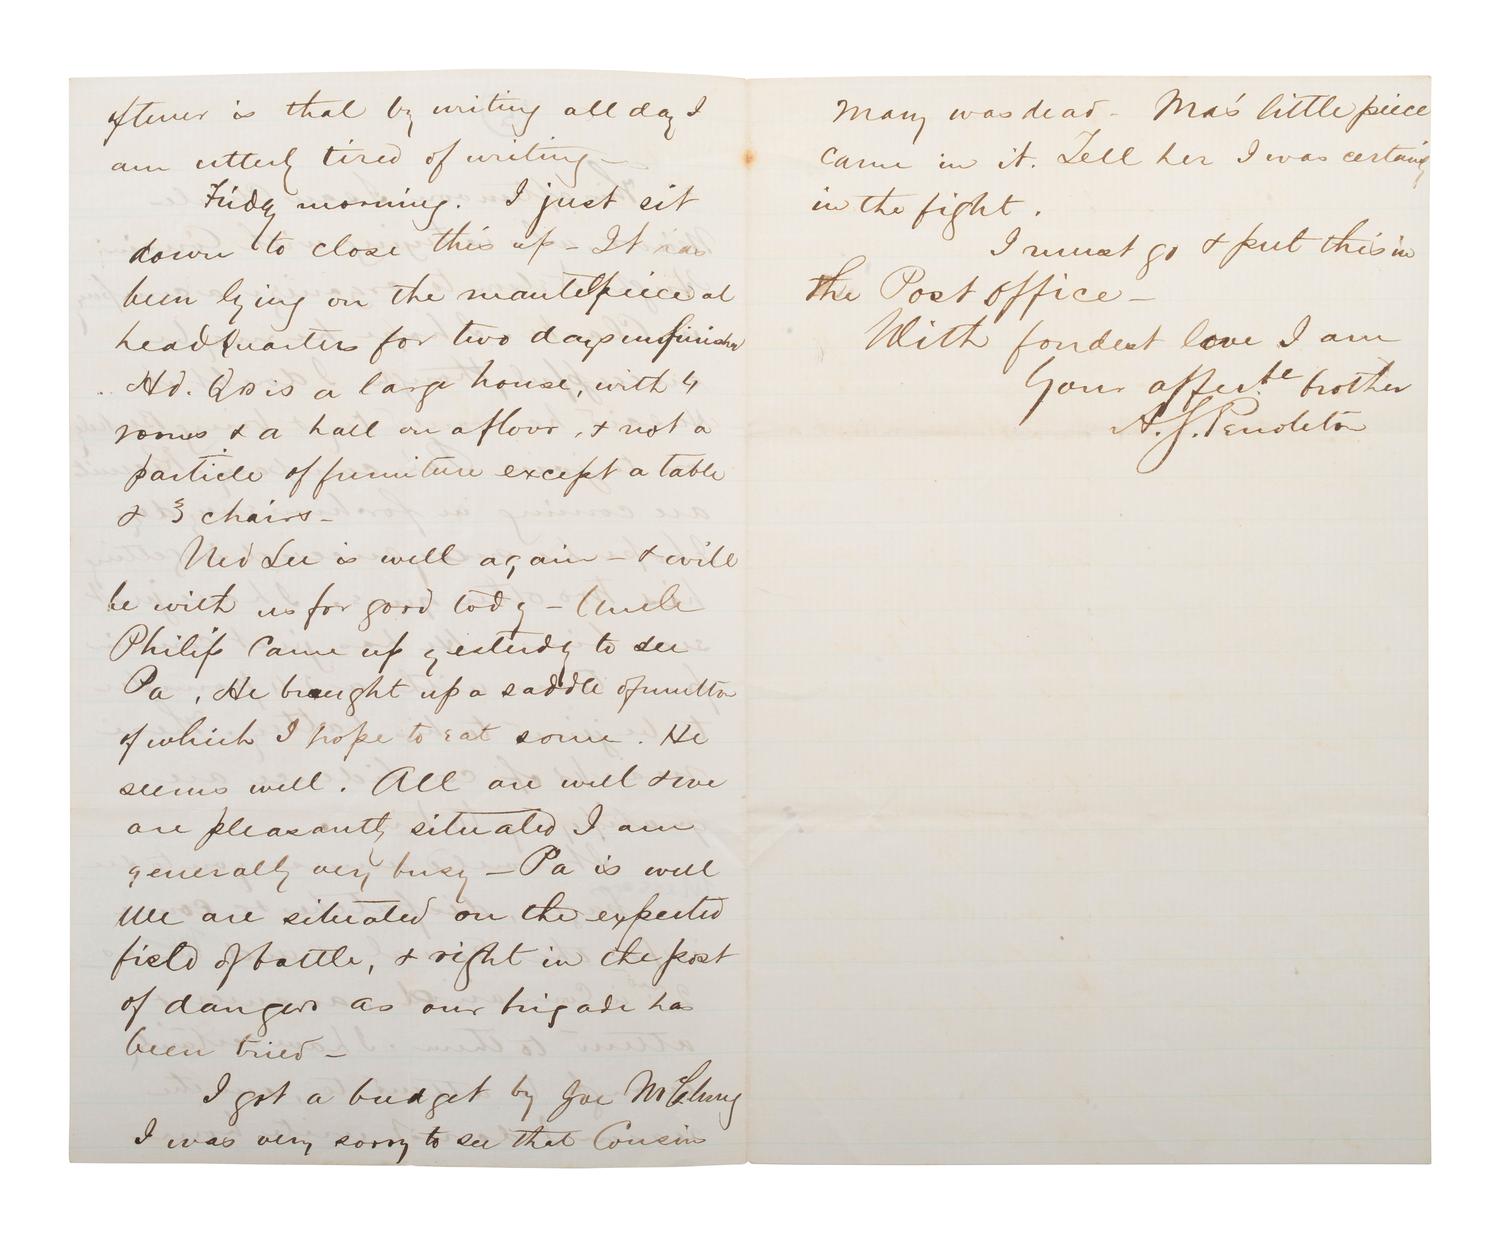 oftener is that by writing all day I
am utterly tired of writing—
Friday morning. I just sit
down to close this up – It has
been lying on the mantelpiece at
headquarters for two days unfinished
Hd. Qrs is a large house, with 4
rooms & a hall on a floor, & not a
particle of furniture except a table
& 3 chairs –
Ned Lee is well again – & will
be with us for good today – Uncle
Philip came up yesterday to see
Pa, He brought up a saddle of mutton
of which I hope to eat some. He
seems well. All are well & we
are pleasantly situated I am
generally very busy – Pa is well
We are situated on the expected
field of battle, & right in the post
of danger as our brigade has
been tried –
I got a budget by Joe McClung
I was very sorry to see that Cousin
Mary was dead – Ma's little piece
came in it. Tell her I was certainly
in the fight.
I must go & put this in
the Post office –
With fondest love I am
Your affecte brother
A. S. Pendleton